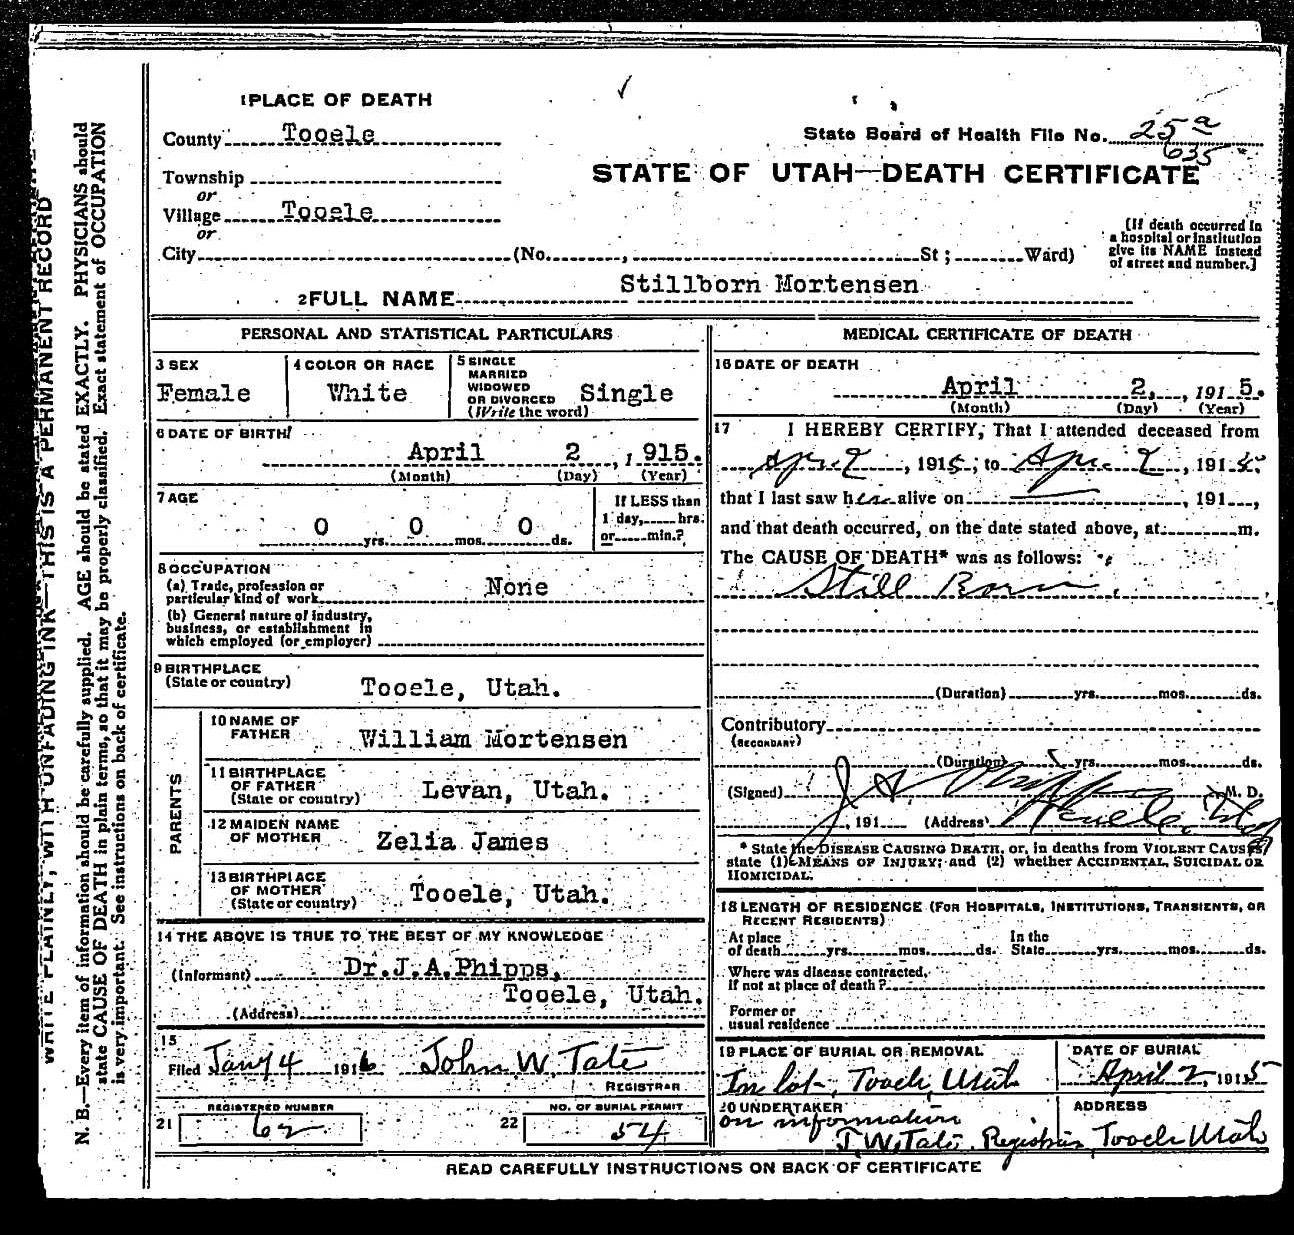 1 PLACE OF DEATH
County Tooele
State Board of Health File No. 25 a
635
Township
or
Village Tooele
or
City (No. , St ; Ward)
STATE OF UTAH—DEATH CERTIFICATE
[If death occurred in
a hospital or institution
give its NAME instead
of street and number.]
2 FULL NAME Stillborn Mortensen
PERSONAL AND STATISTICAL PARTICULARS
3 SEX
Female
4 COLOR OR RACE
White
5 SINGLE
MARRIED
WIDOWED
OR DIVORCED
(Write the word)
Single
6 DATE OF BIRTH
April 2, 1915.
(Month) (Day) (Year)
7 AGE
0 yrs. 0 mos. 0 ds.
If LESS than
1 day, hrs.
or min.?
8 OCCUPATION
(a) Trade, profession or
particular kind of work None
(b) General nature of industry,
business, or establishment in
which employed (or employer)
9 BIRTHPLACE
(State or country) Tooele, Utah.
PARENTS
10 NAME OF
FATHER William Mortensen
11 BIRTHPLACE
OF FATHER
(State or country) Levan, Utah.
12 MAIDEN NAME
OF MOTHER Zelia James
13 BIRTHPLACE
OF MOTHER
(State or country) Tooele, Utah.
14 THE ABOVE IS TRUE TO THE BEST OF MY KNOWLEDGE
(Informant) Dr. J. A. Phipps,
(Address) Tooele, Utah.
15
Filed Jany 4 1916 John W. Tate
REGISTRAR
REGISTERED NUMBER
21 62
NO. OF BURIAL PERMIT
22 54
MEDICAL CERTIFICATE OF DEATH
16 DATE OF DEATH
April 2, 1915.
(Month) (Day) (Year)
17 I HEREBY CERTIFY, That I attended deceased from
Apr. 2, 1915, to Apr. 2, 1915.
that I last saw her alive on , 191 ,
and that death occurred, on the date stated above, at m.
The CAUSE OF DEATH* was as follows:
Still Born.
(Duration) yrs. mos. ds.
Contributory
(SECONDARY)
(Duration) yrs. mos. ds.
(Signed) J A Phipps M. D.
, 191 (Address) Tooele, Utah
* State the DISEASE CAUSING DEATH, or, in deaths from VIOLENT CAUSES,
state (1) MEANS OF INJURY; and (2) whether ACCIDENTAL, SUICIDAL OR
HOMICIDAL.
18 LENGTH OF RESIDENCE (FOR HOSPITALS, INSTITUTIONS, TRANSIENTS, OR
RECENT RESIDENTS)
At place
of death yrs. mos. ds.
In the
State yrs. mos. ds.
Where was disease contracted,
if not at place of death?
Former or
usual residence
19 PLACE OF BURIAL OR REMOVAL
In lot, Tooele, Utah
DATE OF BURIAL
April 2, 1915
20 UNDERTAKER
on information
J. W. Tate, Registrar,
ADDRESS
Tooele Utah
READ CAREFULLY INSTRUCTIONS ON BACK OF CERTIFICATE
WRITE PLAINLY, WITH UNFADING INK—THIS IS A PERMANENT RECORD
N. B.—Every item of information should be carefully supplied. AGE should be stated EXACTLY. PHYSICIANS should
state CAUSE OF DEATH in plain terms, so that it may be properly classified. Exact statement of OCCUPATION
is very important. See instructions on back of certificate.